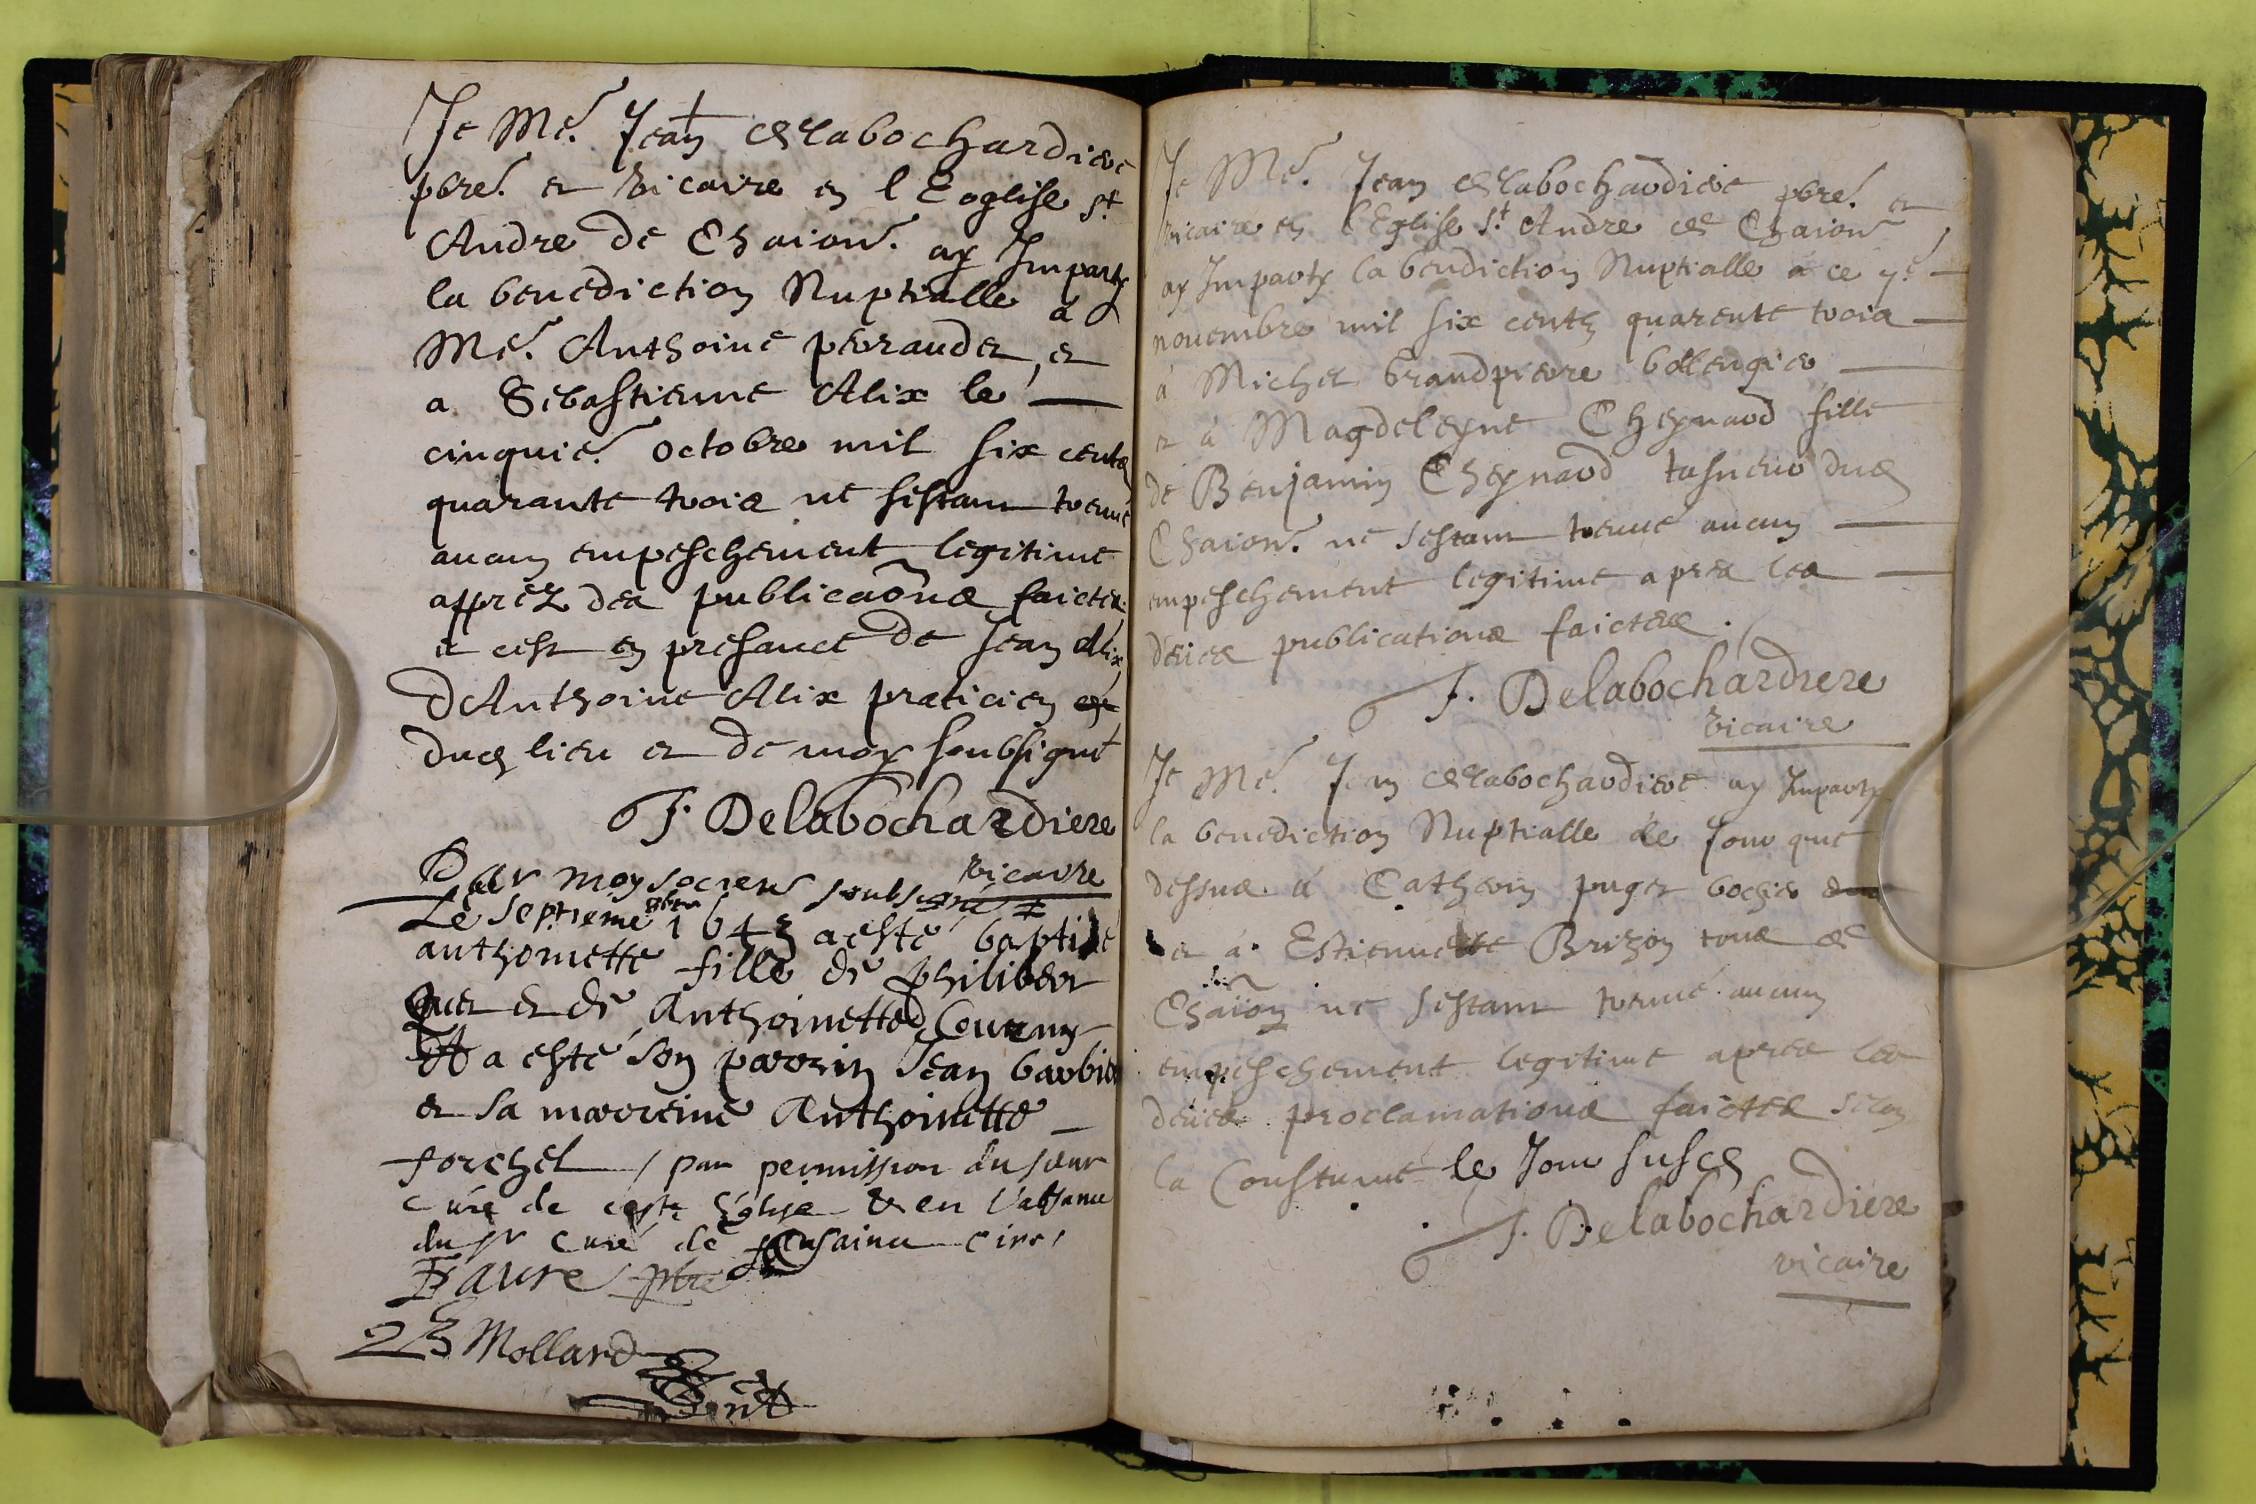 Je Me. Jean Delabochardiere
pbre. et vicaire en l'Eoglise st
Andre de Chaion. ay Imparty
la benediction Nuptialle a
Me. Anthoine perraudet, et
a Sebastienne Alix le
cinquie. octobre mil six centz
quarante trois ne sestant trenné
aucun empeschement legitime
apprez des publicaõns faictes
et cest en presance de Jean Alix
D'Anthoine Alix praticien
dud lieu et de moy soubsigné
J. Delabochardiere
vicaire
Par moy socien soubsigné
Le septieme 8bre 1643 a esté baptisé
anthoinette fille de philibert
et de Anthoinette
a esté son parrin Jean barbier
et sa marreine Anthoinette
forchet / par permission du sieur
curé de ceste Eglise & en l'absance
du sr curé de
Faure pbre
Mollard
Je Me. Jean Delabochardiere pbre. et
vicaire en l'Eglise st Andre de Chaion
ay Imparty la bendiction Nuptialle a ce 7e
novembre mil six centz quarente trois
à Michel Grandpierre bollengier
et à Magdeleyne Cheynard fille
de Benjamin Cheynard dud
Chaion. ne sestant trenné aucun
empeschement legitime apres les
deues publications faictes.
J. Delabochardiere
vicaire
Je Me. Jean Delabochardiere ay Imparty
la benediction Nuptialle de Jour que
dessus à Catherin puget bochier
et à Estiennette Brizon tous de
Chaion ne sestant trenné aucun
empeschement legitime apres les
deues proclamations faictes selon
la Constume le Jour susd
J. Delabochardiere
vicaire